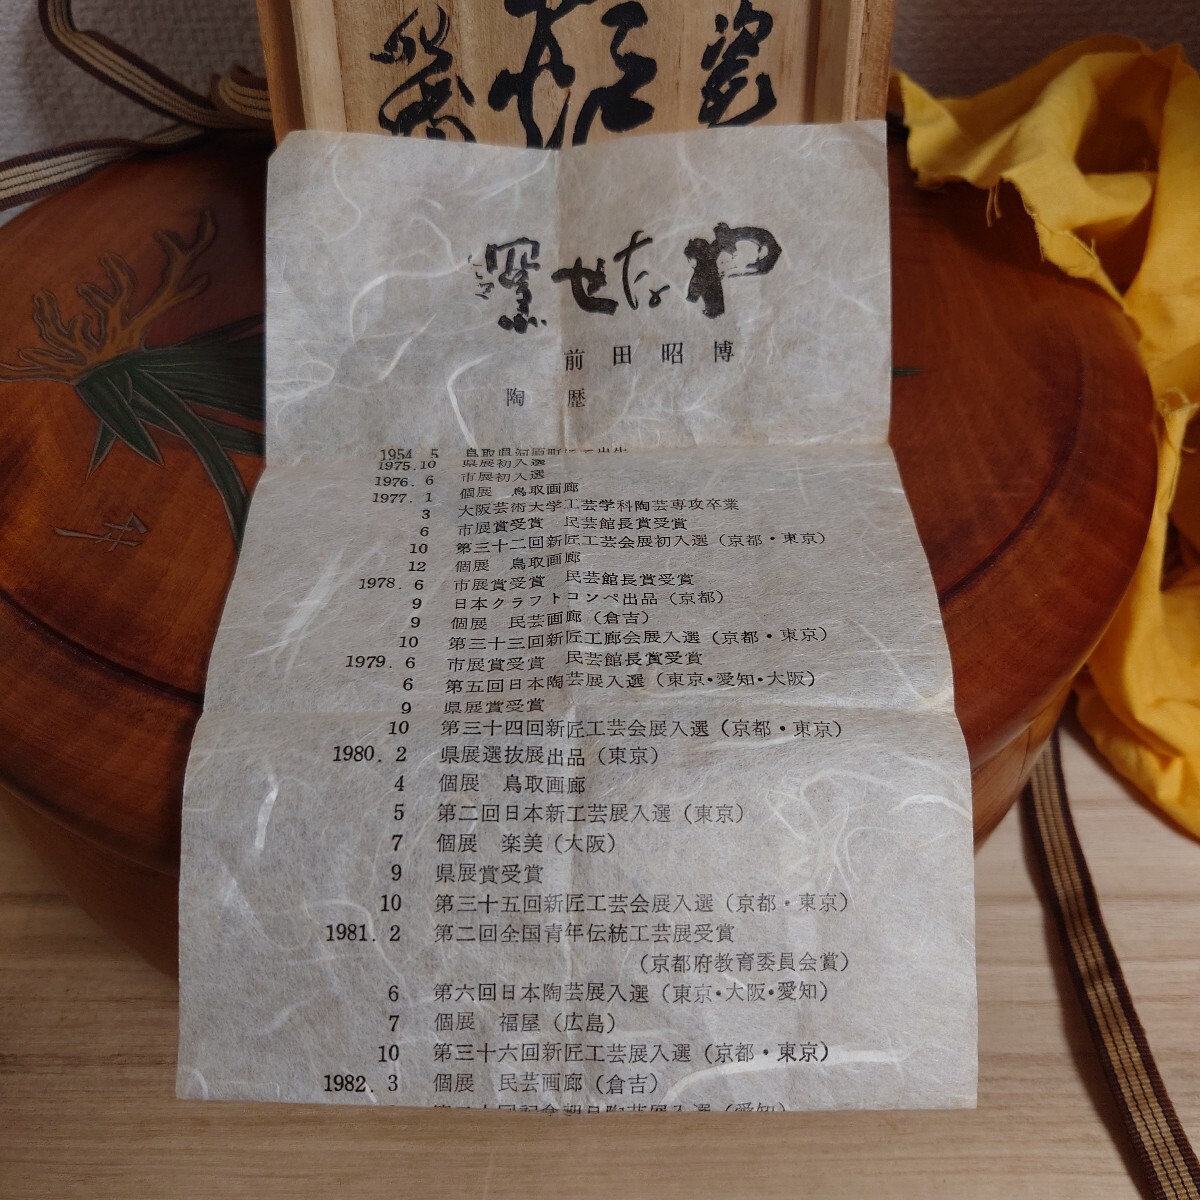 やなせ窯
前田昭博
陶歴
1954. 5 鳥取県河原町に出生
1975.10 県展初入選
1976. 6 市展初入選
1977. 1 個展 鳥取画廊
3 大阪芸術大学工芸学科陶芸専攻卒業
6 市展賞受賞 民芸館長賞受賞
10 第三十二回新匠工芸会展初入選(京都・東京)
12 個展 鳥取画廊
1978. 6 市展賞受賞 民芸館長賞受賞
9 日本クラフトコンペ出品(京都)
9 個展 民芸画廊(倉吉)
10 第三十三回新匠工廊会展入選(京都・東京)
1979. 6 市展賞受賞 民芸館長賞受賞
6 第五回日本陶芸展入選(東京・愛知・大阪)
9 県展賞受賞
10 第三十四回新匠工芸会展入選(京都・東京)
1980. 2 県展選抜展出品(東京)
4 個展 鳥取画廊
5 第二回日本新工芸展入選(東京)
7 個展 楽美(大阪)
9 県展賞受賞
10 第三十五回新匠工芸会展入選(京都・東京)
1981. 2 第二回全国青年伝統工芸展受賞
(京都府教育委員会賞)
6 第六回日本陶芸展入選(東京・大阪・愛知)
7 個展 福屋(広島)
10 第三十六回新匠工芸展入選(京都・東京)
1982. 3 個展 民芸画廊(倉吉)